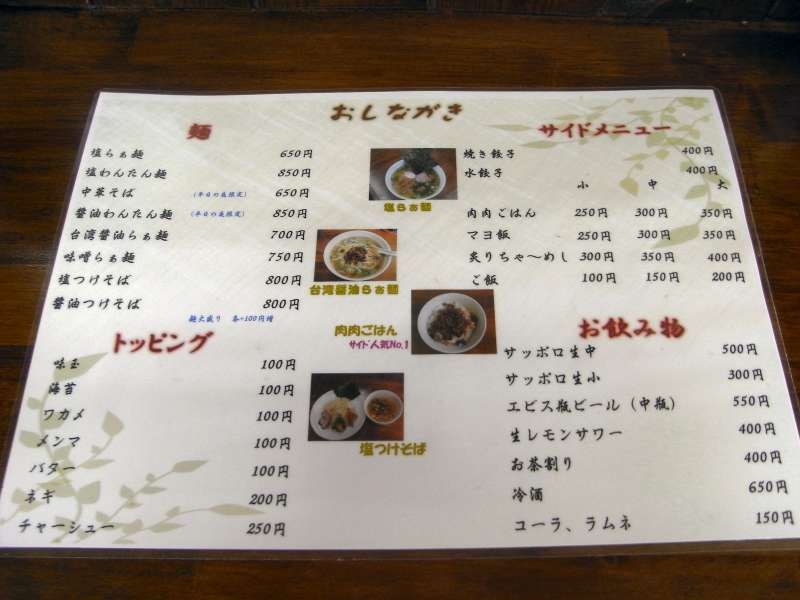 おしながき
麺
塩らぁ麺 650円
塩わんたん麺 850円
中華そば (平日の昼限定) 650円
醤油わんたん麺 (平日の昼限定) 850円
台湾醤油らぁ麺 700円
味噌らぁ麺 750円
塩つけそば 800円
醤油つけそば 800円
麺大盛り 各+100円増
トッピング
味玉 100円
海苔 100円
ワカメ 100円
メンマ 100円
バター 100円
ネギ 200円
チャーシュー 250円
塩らぁ麺
台湾醤油らぁ麺
肉肉ごはん
サイド人気No.1
塩つけそば
サイドメニュー
焼き餃子 400円
水餃子 400円
小 中 大
肉肉ごはん 250円 300円 350円
マヨ飯 250円 300円 350円
炙りちゃ〜めし 300円 350円 400円
ご飯 100円 150円 200円
お飲み物
サッポロ生中 500円
サッポロ生小 300円
エビス瓶ビール（中瓶） 550円
生レモンサワー 400円
お茶割り 400円
冷酒 650円
コーラ、ラムネ 150円